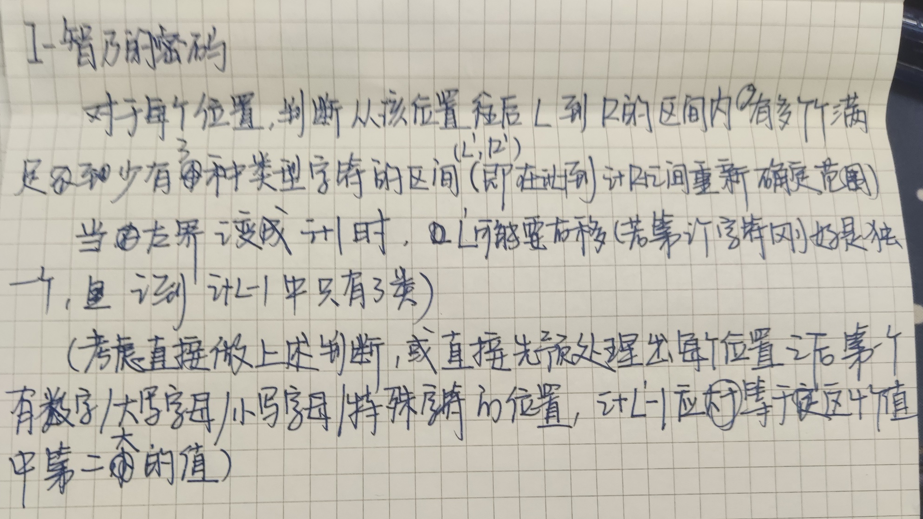 I-智乃的密码
对于每个位置,判断从该位置往后L到R的区间内有多少个满
足至少有3种类型字符的区间(即在i+L到i+R之间重新确定范围)
(L',R')
当左界i变成i+1时,L'可能要右移(若第i个字符刚好是独
一个,且i到i+L-1中只有3类)
(考虑直接做上述判断,或直接先预处理出每个位置之后第一个
有数字/大写字母/小写字母/特殊字符的位置,i+L'-1应大于等于这4个值
中第二大的值)